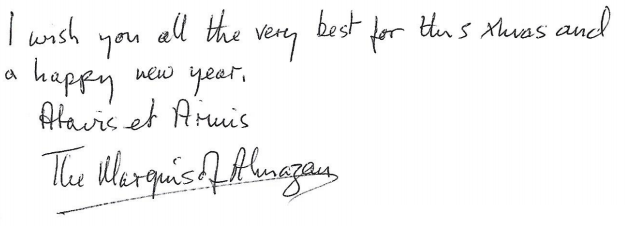 I wish you all the very best for this xmas and
a happy new year.
Atavis et Armis
The Marquis of Almazan